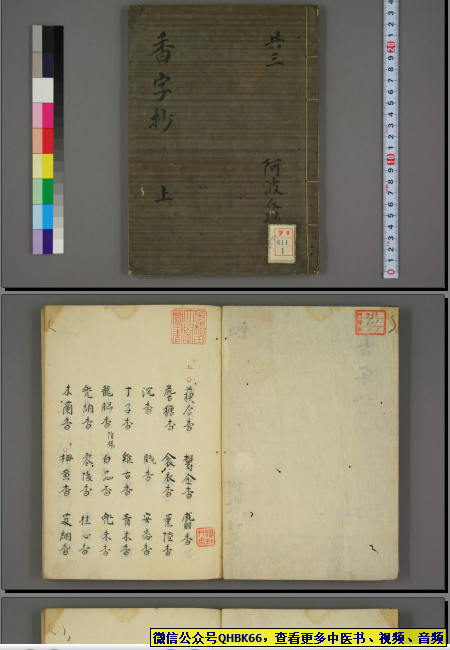 共三
香字抄
上
阿波
611
1
上
蘇合香 鬱金香 麝香
詹糖香 衾衣香 薫陸香
沉香 香 安息香
丁子香 雞舌香 青木香
龍脳香 白芷香 兜末香
兜納香 零陵香 桂心香
木蘭香 香 艾納香
微信公众号QHBK66，查看更多中医书、视频、音频